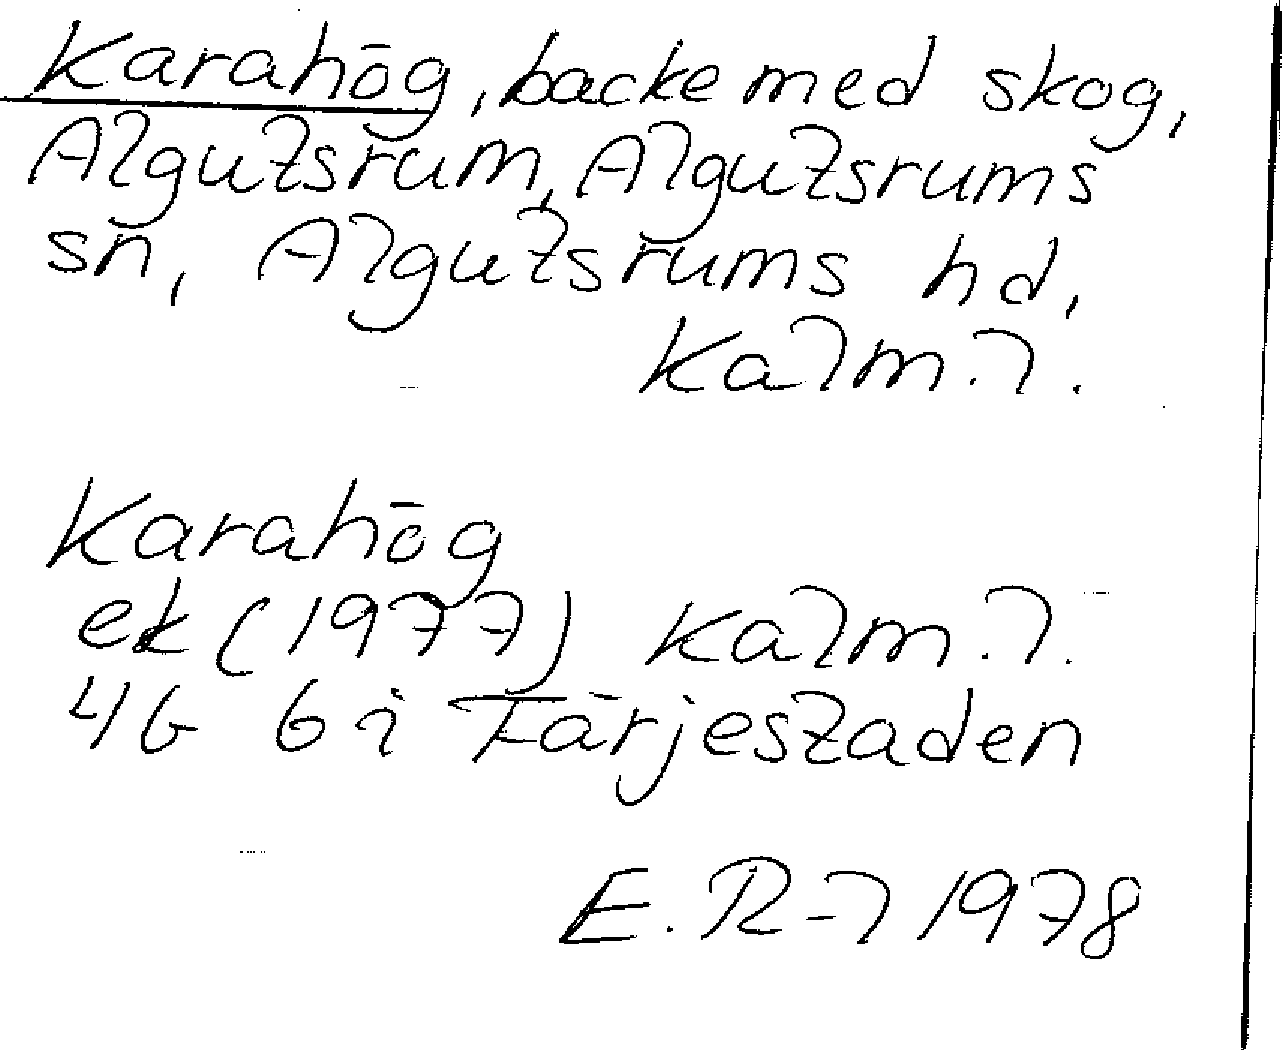 Karahög, backe med skog,
Algutsrum, Algutsrums
sn, Algutsrums hd,
Kalm. l.
Karahög
ek (1977) Kalm. l.
4G 6i Färjestaden
E. R-l 1978